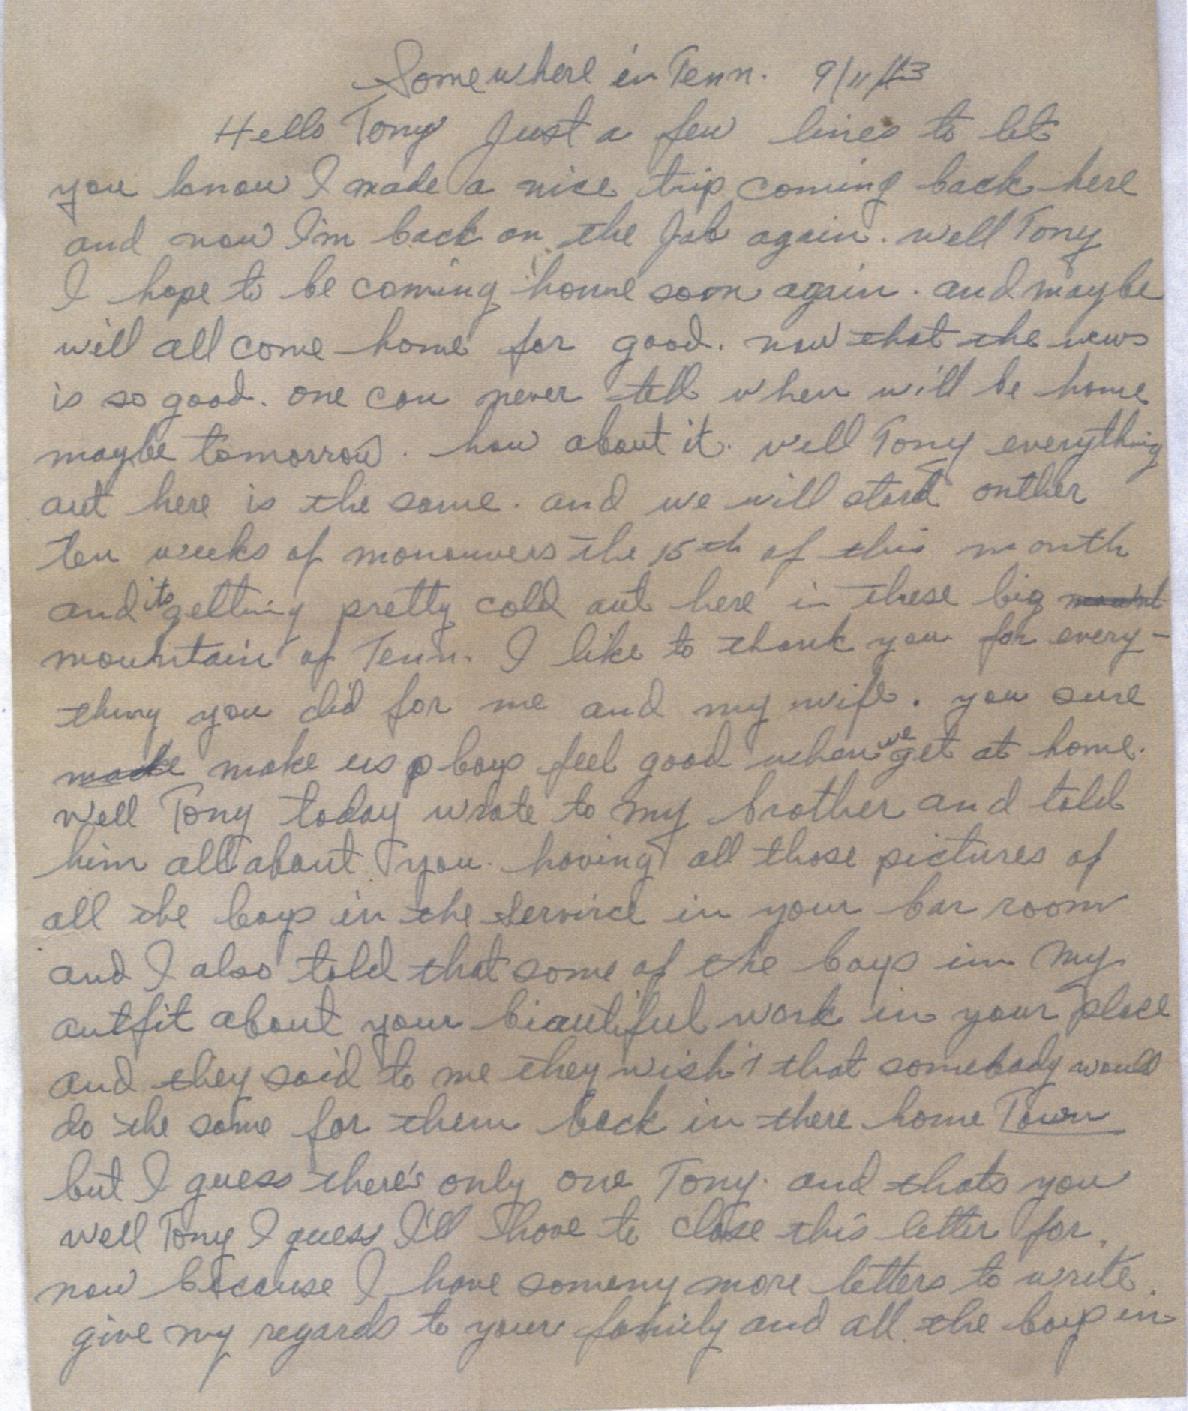 Somewhere in Tenn. 9/11/43
Hello Tony Just a few lines to let
you know I made a nice trip coming back here
and now I'm back on the Job again. well Tony
I hope to be coming home soon again. and maybe
will all come home for good. now that the news
is so good. one can never tell when will be home
maybe tomorrow. how about it. well Tony everything
out here is the same. and we will start onther
ten weeks of manouvers the 15th of this month
and its getting pretty cold out here in these big
mountain of Tenn. I like to thank you for every-
thing you did for me and my wife. you sure
make us boys feel good when we get at home.
well Tony today wrote to my brother and told
him all about you. having all those pictures of
all the boys in the Service in your bar room
and I also told that some of the boys in my
outfit about your biautiful work in your place
and they said to me they wish't that somebody would
do the same for them back in there home Town
but I guess there's only one Tony. and thats you
well Tony I guess I'll have to close this letter for.
now because I have someny more letters to write
give my regards to your family and all the boys in